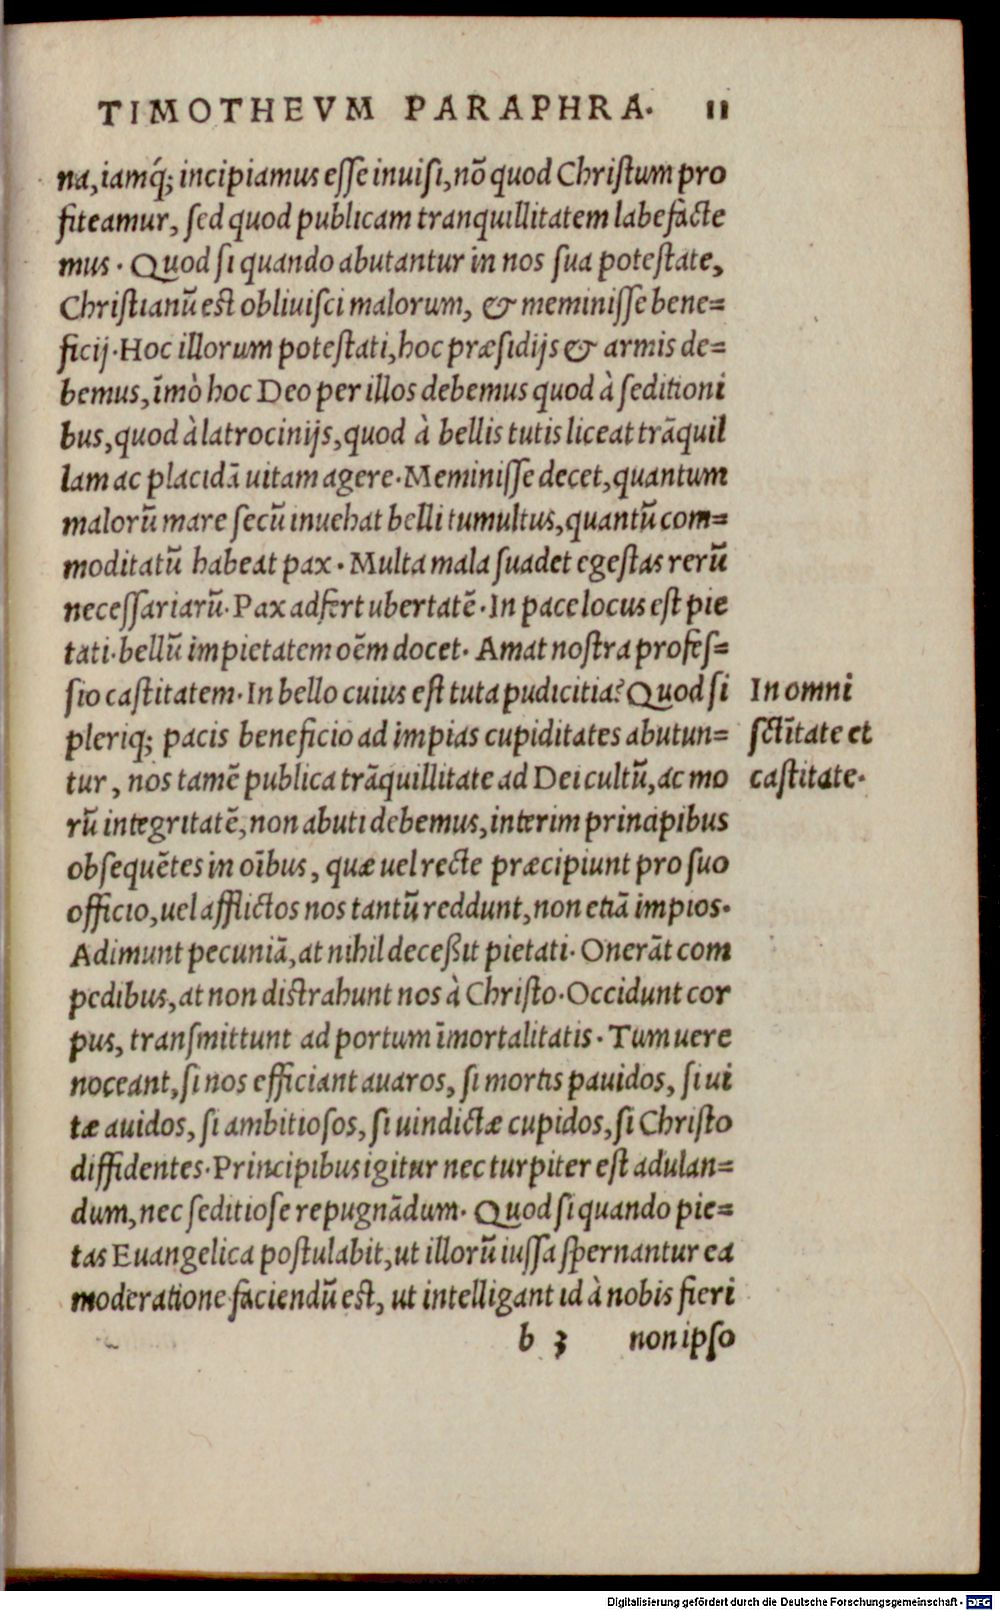 TIMOTHEVM PARAPHRA. 11
na, iamq́; incipiamus esse inuisi, nõ quod Christum pro
fiteamur, sed quod publicam tranquillitatem labefacte
mus. Quod si quando abutantur in nos sua potestate,
Christianũ est obliuisci malorum, & meminisse bene=
ficij. Hoc illorum potestati, hoc præsidijs & armis de=
bemus, ĩmò hoc Deo per illos debemus quod à seditioni
bus, quod à latrocinijs, quod à bellis tutis liceat trãquil
lam ac placidã uitam agere. Meminisse decet, quantum
malorũ mare secũ inuehat belli tumultus, quantũ com=
moditatũ habeat pax. Multa mala suadet egestas rerũ
necessariarũ. Pax adfert ubertatẽ. In pace locus est pie
tati. bellũ impietatem oẽm docet. Amat nostra profes=
sio castitatem. In bello cuius est tuta pudicitia? Quod si
pleriq; pacis beneficio ad impias cupiditates abutun=
tur, nos tamẽ publica trãquillitate ad Dei cultũ, ac mo
rũ integritatẽ, non abuti debemus, interim principibus
obsequẽtes in oĩbus, quæ uel recte præcipiunt pro suo
officio, uel afflictos nos tantũ reddunt, non etiã impios.
Adimunt pecuniã, at nihil deceßit pietati. Onerãt com
pedibus, at non distrahunt nos à Christo. Occidunt cor
pus, transmittunt ad portum ĩmortalitatis. Tum uere
noceant, si nos efficiant auaros, si mortis pauidos, si ui
tæ auidos, si ambitiosos, si uindictæ cupidos, si Christo
diffidentes. Principibus igitur nec turpiter est adulan=
dum, nec seditiose repugnãdum. Quod si quando pie=
tas Euangelica postulabit, ut illorũ iussa spernantur ea
moderatione faciendũ est, ut intelligant id à nobis fieri
b 3 non ipso
In omni
sctĩtate et
castitate.
Digitalisierung gefördert durch die Deutsche Forschungsgemeinschaft - DFG